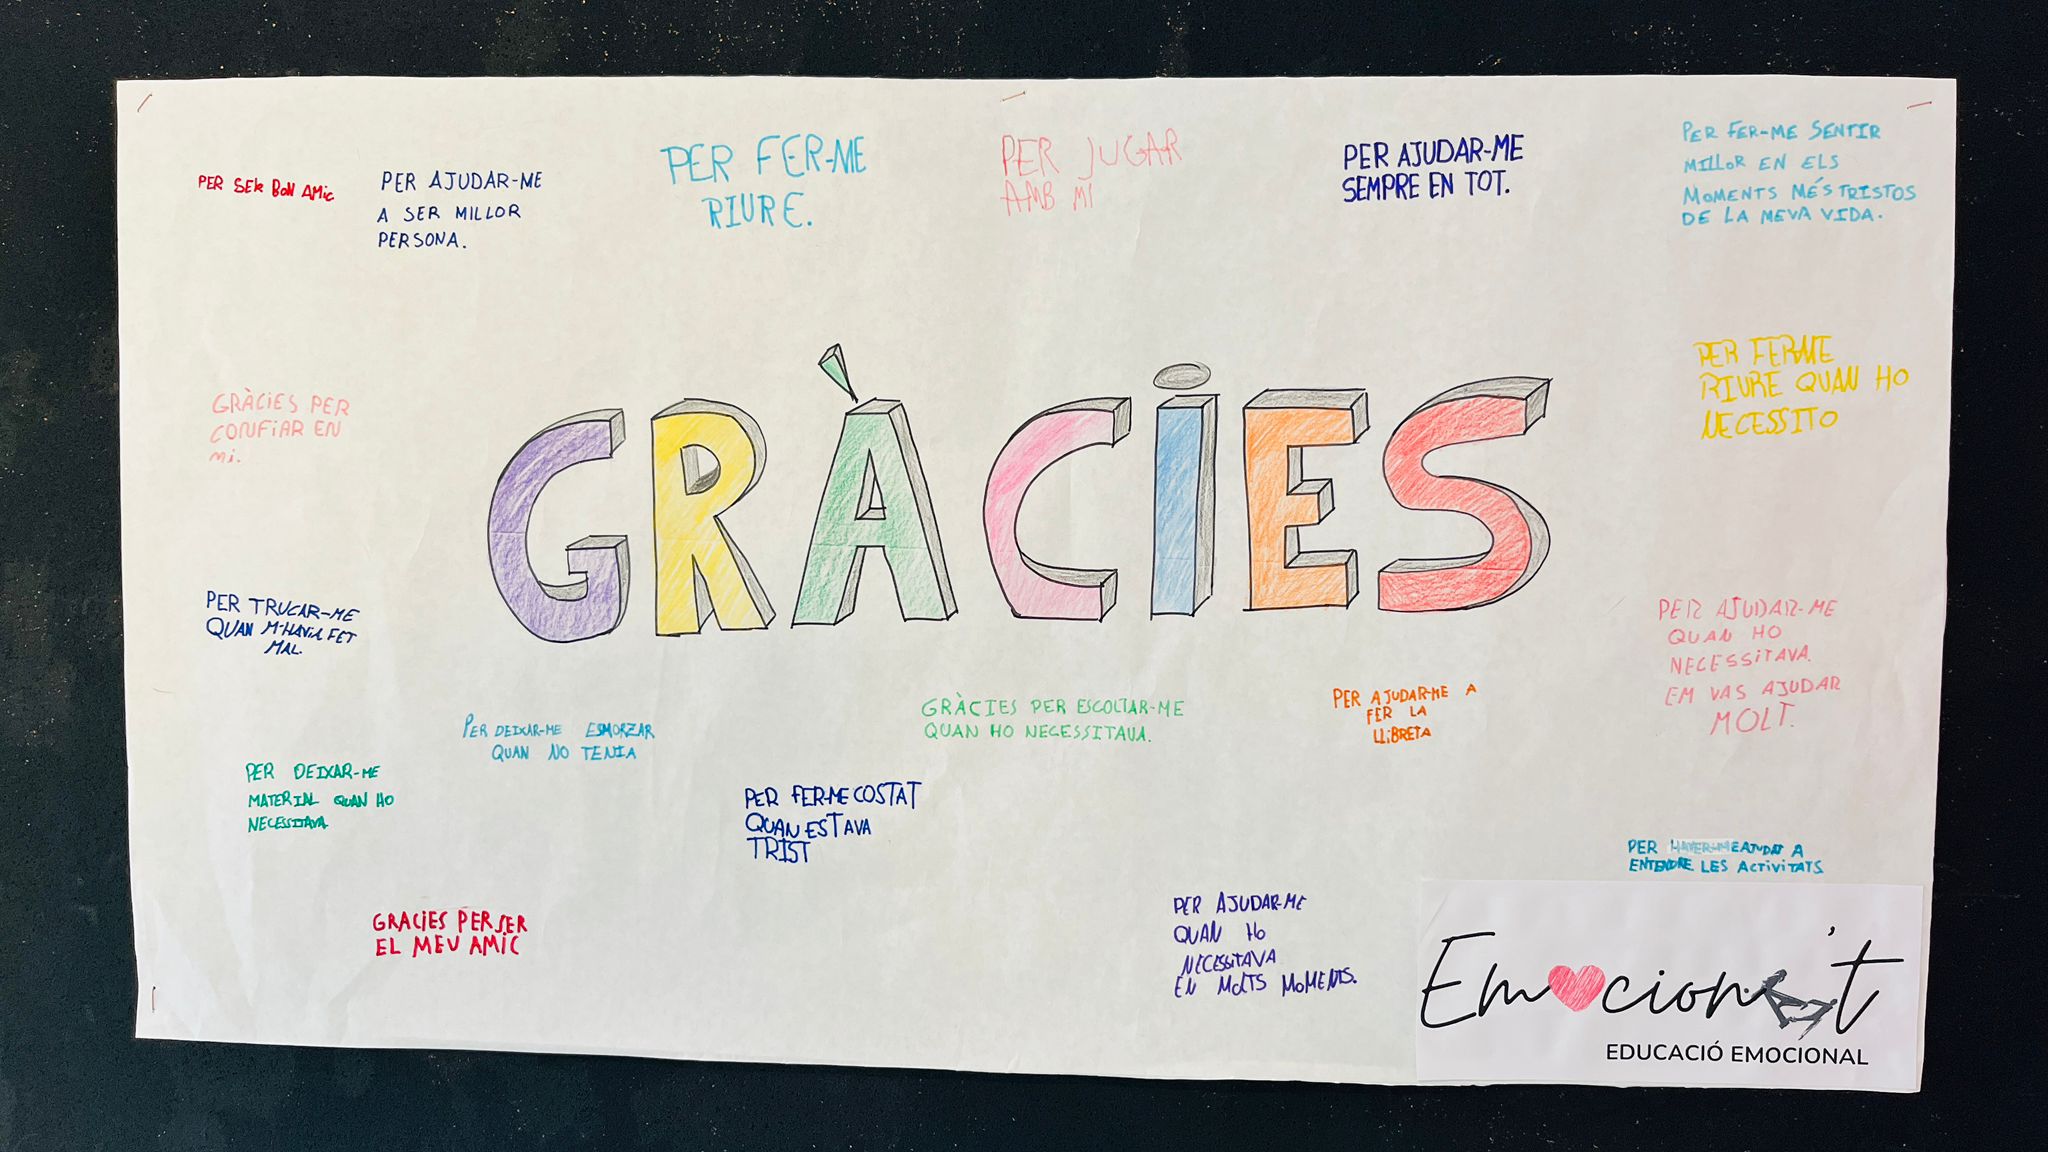 PER SER BON AMIC
PER AJUDAR-ME
A SER MILLOR
PERSONA.
PER FER-ME
RIURE.
PER JUGAR
AMB MI
PER AJUDAR-ME
SEMPRE EN TOT.
PER FER-ME SENTIR
MILLOR EN ELS
MOMENTS MÉS TRISTOS
DE LA MEVA VIDA.
GRÀCIES PER
CONFIAR EN
mi.
GRÀCIES
PER FER-ME
RIURE QUAN HO
NECESSITO
PER TRUCAR-ME
QUAN M'HAVIA FET
MAL.
PER AJUDAR-ME
QUAN HO
NECESSITAVA.
EM VAS AJUDAR
MOLT.
PER DEIXAR-ME ESMORZAR
QUAN NO TENIA
GRÀCIES PER ESCOLTAR-ME
QUAN HO NECESSITAVA.
PER AJUDAR-ME A
FER LA
LLIBRETA
PER DEIXAR-ME
MATERIAL QUAN HO
NECESSITAVA
PER FER-ME COSTAT
QUAN ESTAVA
TRIST
PER HAVER-ME AJUDAT A
ENTENDRE LES ACTIVITATS
GRACIES PER SER
EL MEU AMIC
PER AJUDAR-ME
QUAN HO
NECESSITAVA
EN MOLTS MOMENTS.
Emociona't
EDUCACIÓ EMOCIONAL